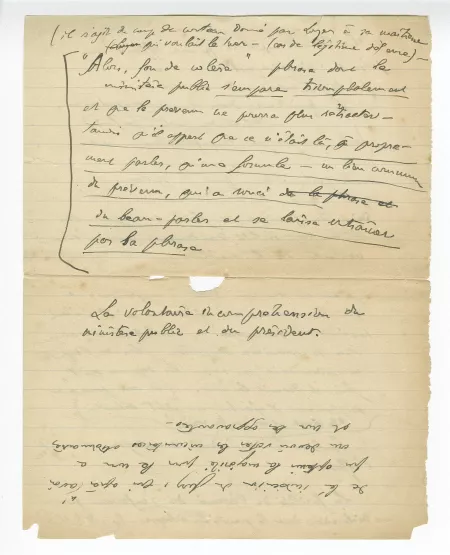 (il s'agit de coup de couteau donné par Lugon à sa maîtresse
qui voulait le tuer — (cas de légitime défense) —
"Alors, fou de colère" phrase dont le
ministère public s'empare triomphalement
et que le prévenu ne pourra plus rétracter —
tandis qu'il appert que ce n'était là, à propre-
ment parler, qu'une formule — un lieu commun
du prévenu, qui a souci de la phrase et
du beau-parler et se laisse entraîner
par la phrase
La volontaire incompréhension du
ministère public et du président.
de la du jury, qui après avoir
la majorité pour la un a
cru devoir voter les circonstances atténuantes
et sur les apparences —